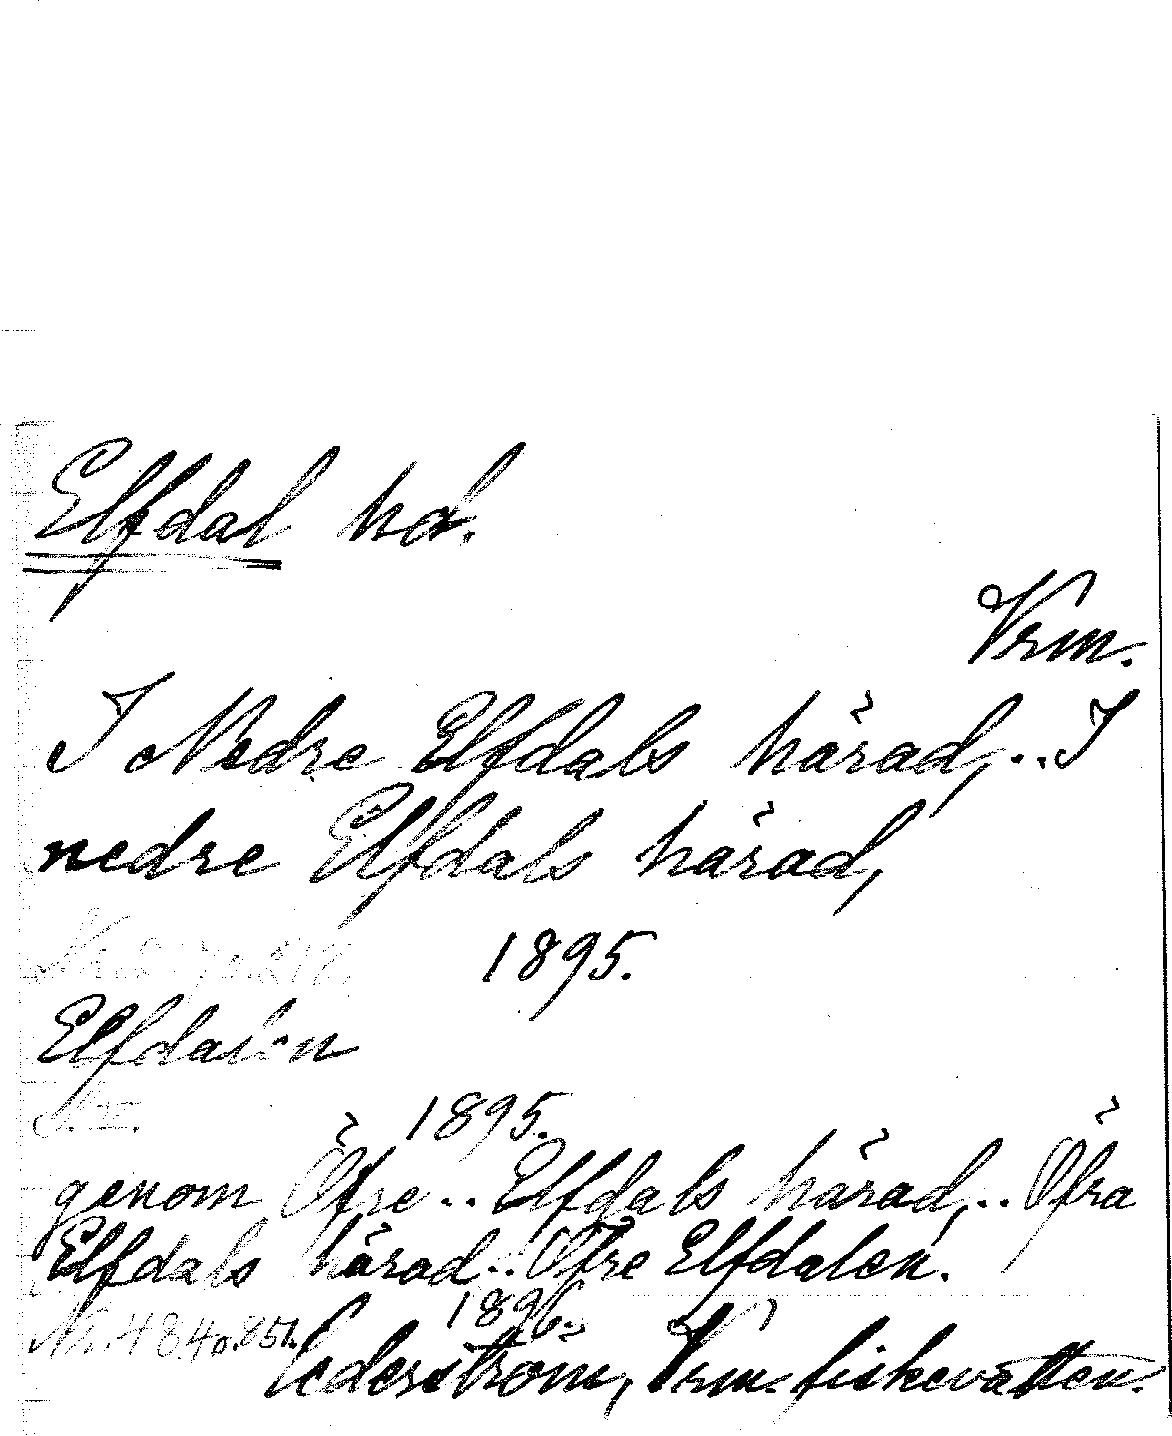 Elfdal hd.
Vrm.
I Nedre Elfdals härad,..I
nedre Elfdals härad,
1895.
Elfdalen
S. VI.
1895.
genom Öfre.. Elfdals härad,.. Öfra
Elfdals härad... Öfre Elfdalen.
1896.
Cederström, Vrm. fiskevatten.